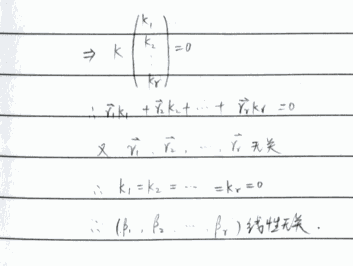 ⇒ K (k₁ k₂ ⋮ kᵣ) = 0
∴ r⃗₁k₁ + r⃗₂k₂ + ⋯ + r⃗ᵣkᵣ = 0
又 r⃗₁, r⃗₂, ⋯, r⃗ᵣ 无关
∴ k₁ = k₂ = ⋯ = kᵣ = 0
∴ (β₁, β₂ ⋯ βᵣ) 线性无关.